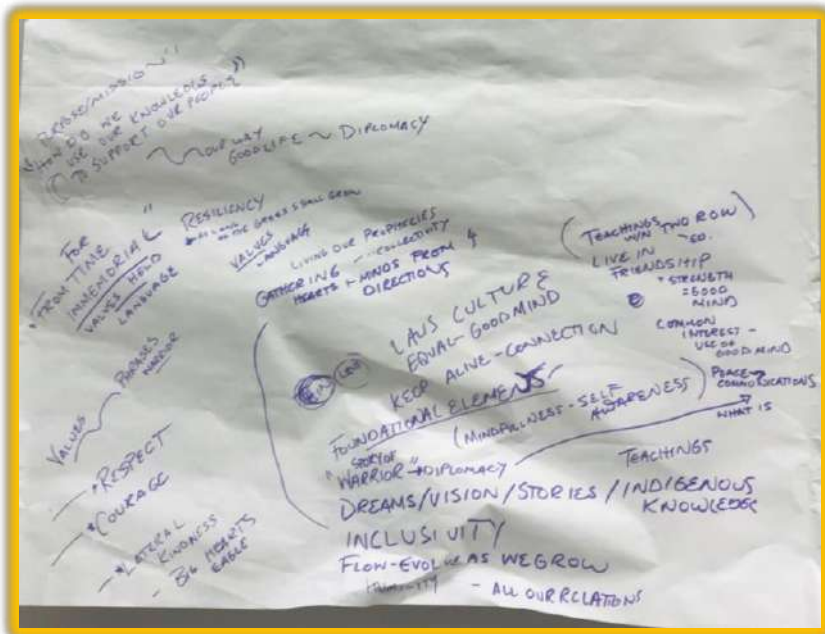 PURPOSE/MISSION
HOW DO WE
USE OUR KNOWLEDGE
TO SUPPORT OUR PEOPLE
OUR WAY
GOOD LIFE ~ DIPLOMACY
FOR
"FROM TIME
IMMEMORIAL"
VALUES HELD
LANGUAGE
RESILIENCY
AS THE GRASS SHALL GROW
VALUES
LANGUAGE
LIVING OUR PROPHECIES
GATHERING - COLLECTIVITY
HEARTS + MINDS FROM 4
DIRECTIONS
(TEACHINGS TWO ROW)
W/N
LIVE IN
FRIENDSHIP
STRENGTH
= GOOD
MIND
COMMON
INTEREST -
USE OF
GOOD MIND
PEACE
COMMUNICATIONS
WHAT IS
LAWS CULTURE
EQUAL - GOOD MIND
KEEP ALIVE - CONNECTION
FOUNDATIONAL ELEMENTS -
(MINDFULLNESS - SELF
AWARENESS)
"STORY OF
WARRIOR" → DIPLOMACY
TEACHINGS
DREAMS/VISION/STORIES/INDIGENOUS
KNOWLEDGE
INCLUSIVITY
FLOW - EVOLVE AS WE GROW
HUMILITY - ALL OUR RELATIONS
VALUES
PHRASES
WARRIOR
* RESPECT
* COURAGE
* LATERAL
KINDNESS
- BIG HEARTS
EAGLE